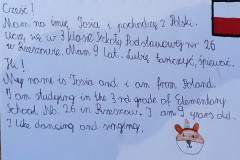 Cześć!
Mam na imię Tosia i pochodzę z Polski.
Uczę się w 3 klasie Szkoły Podstawowej nr 26
w Rzeszowie. Mam 9 lat. Lubię tańczyć, śpiewać.
Hi!
My name is Tosia and i am from Poland.
I am studying in the 3rd grade of Elementary
School No. 26 in Rzeszow. I am 9 years old.
I like dancing and singing.